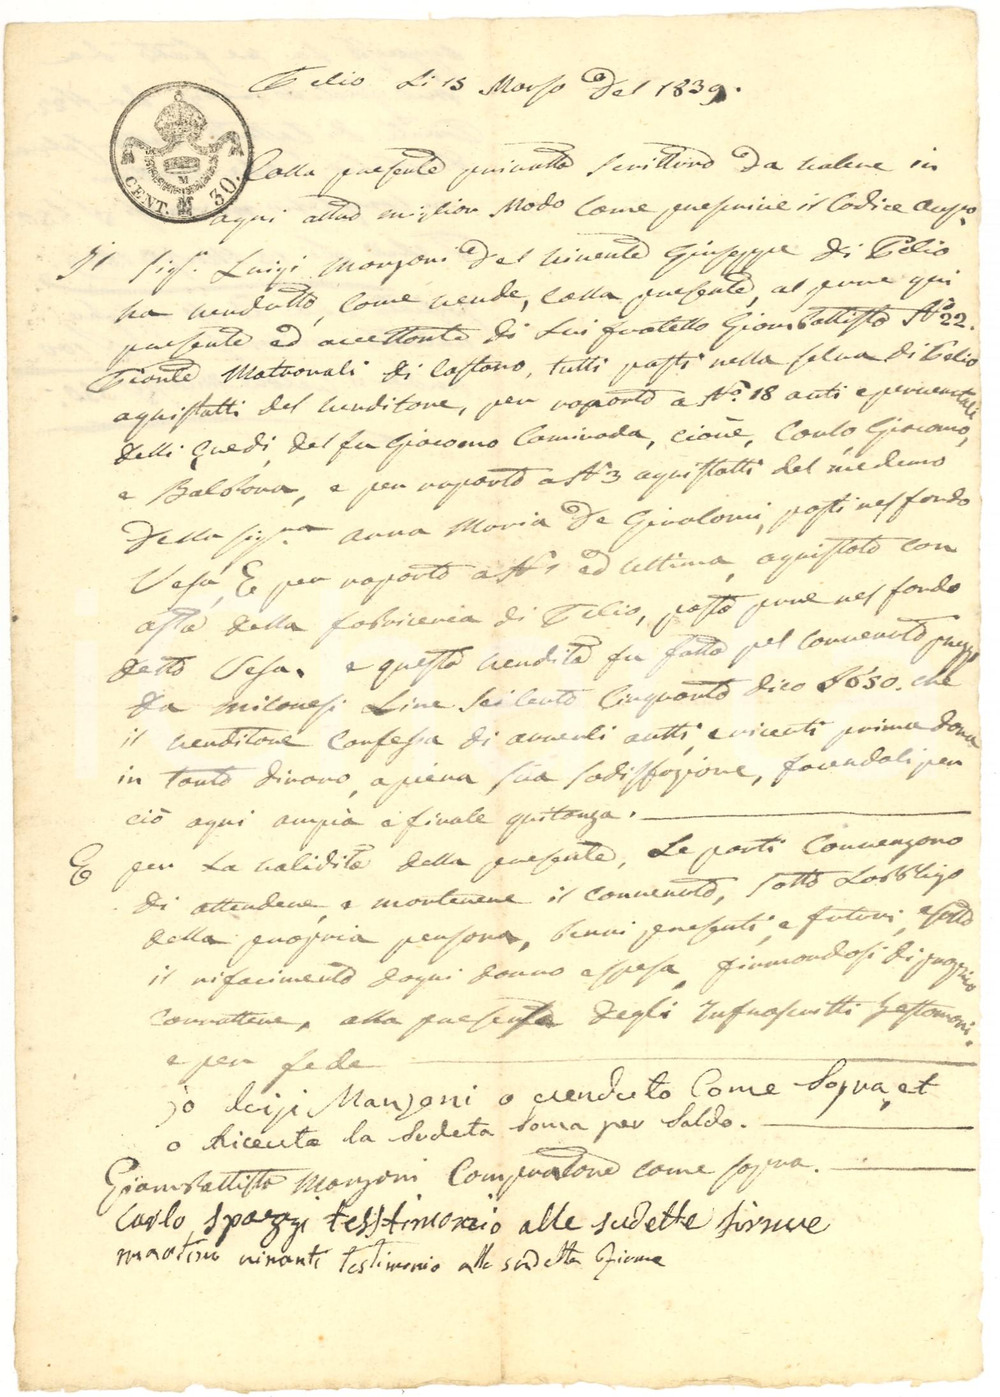 Telio Li 15 Marzo del 1839.
CENT. 30.
M
Colla presente privatta scrittura da valere in
ogni altro miglior Modo Come prescrive il Codice Auspo
Il Sigr. Luigi Manzoni del vivente Giuseppe di Telio
ha venduto, Come vende, Colla presente, al pure qui
presente ed accettante di Lui fratello Giambattista No 22.
Piante Matronali di Castano, tutti posti nella selva di Telio
aquistatti del venditore, per raporto a No. 18 anti e
delli Eredi, del fu Giacomo Caminada, cioùe, Carlo, Giacomo,
e Balsara, e per raporto a No 3 aquistatti del medemo
della Sigra anna Maria De Girolomi, posti nel fondo
Vesa, E per raporto a No 1 ed ultima, aquistato con
asta della fabriceria di Telio, posta pure nel fondo
detto Vesa. e questa vendita fu fatta pel convenuto prezzo
da milanesi Lire Seicento Cinquanta dico £650. che
il venditore Confessa di averli autti, e ricevuti prima d'ora
in tanto dinaro, a piena sua sodisfazione, facendoli per
ciò ogni ampia e finale quitanza.
E per La validità della presente, Le parti Convengono
di attendere, e mantenere il convenuto, sotto Lobbligo
della propria persona, benni presenti, e futuri, e sotto
il rifacimento dogni danno e spesa, firmandosi di proprio
carrattere, alla presenza degli Infrascritti Testomoni.
e per fede
Jo Luigi Manzoni o venduto Come Sopra, et
o Riceuta la Sudeta Soma per Saldo.
Giambattista Manzoni Compratore come sopra.
Carlo spazzi testtimonio alle sudette firme
martino vinanti testimonio alle sudetta firme